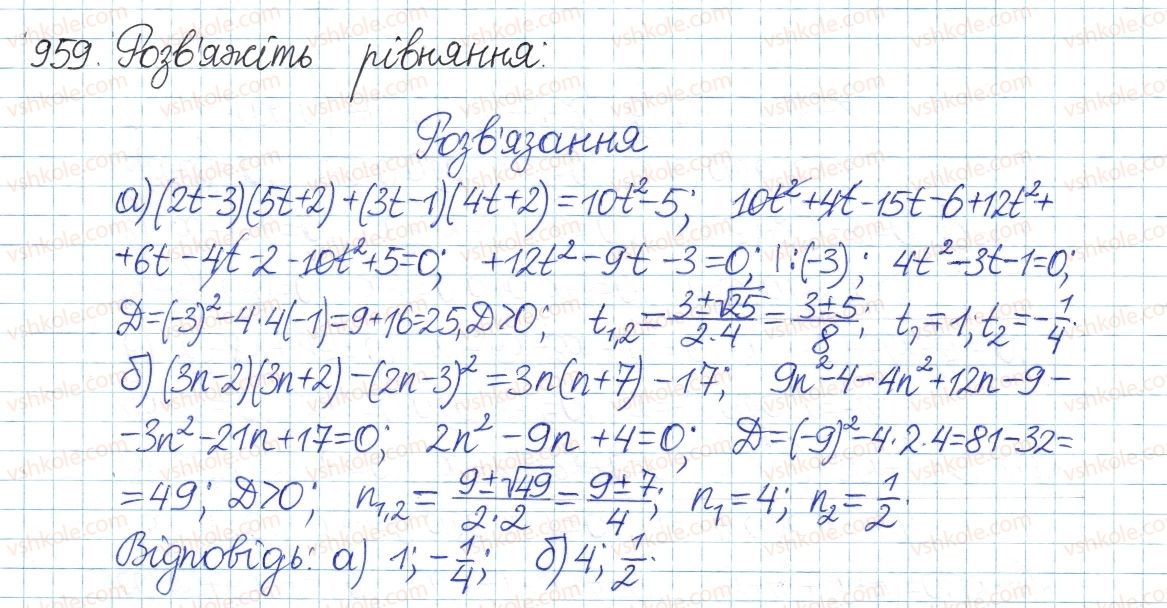 959. Розв'яжіть рівняння:
Розв'язання
а) (2t-3)(5t+2)+(3t-1)(4t+2)=10t²-5; 10t²+4t-15t-6+12t²+
+6t-4t-2-10t²+5=0; +12t²-9t-3=0; |:(-3); 4t²-3t-1=0;
Д=(-3)²-4·4(-1)=9+16=25, Д>0; t₁,₂=(3±√25)/(2·4)=(3±5)/8; t₁=1; t₂=-1/4.
б) (3n-2)(3n+2)-(2n-3)²=3n(n+7)-17; 9n²-4-4n²+12n-9-
-3n²-21n+17=0; 2n²-9n+4=0; Д=(-9)²-4·2·4=81-32=
=49; Д>0; n₁,₂=(9±√49)/(2·2)=(9±7)/4; n₁=4; n₂=1/2.
Відповідь: а) 1; -1/4; б) 4; 1/2.
vshkole.com